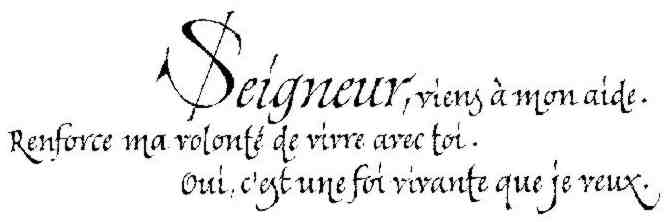 Seigneur, viens à mon aide.
Renforce ma volonté de vivre avec toi.
Oui, c'est une foi vivante que je veux.